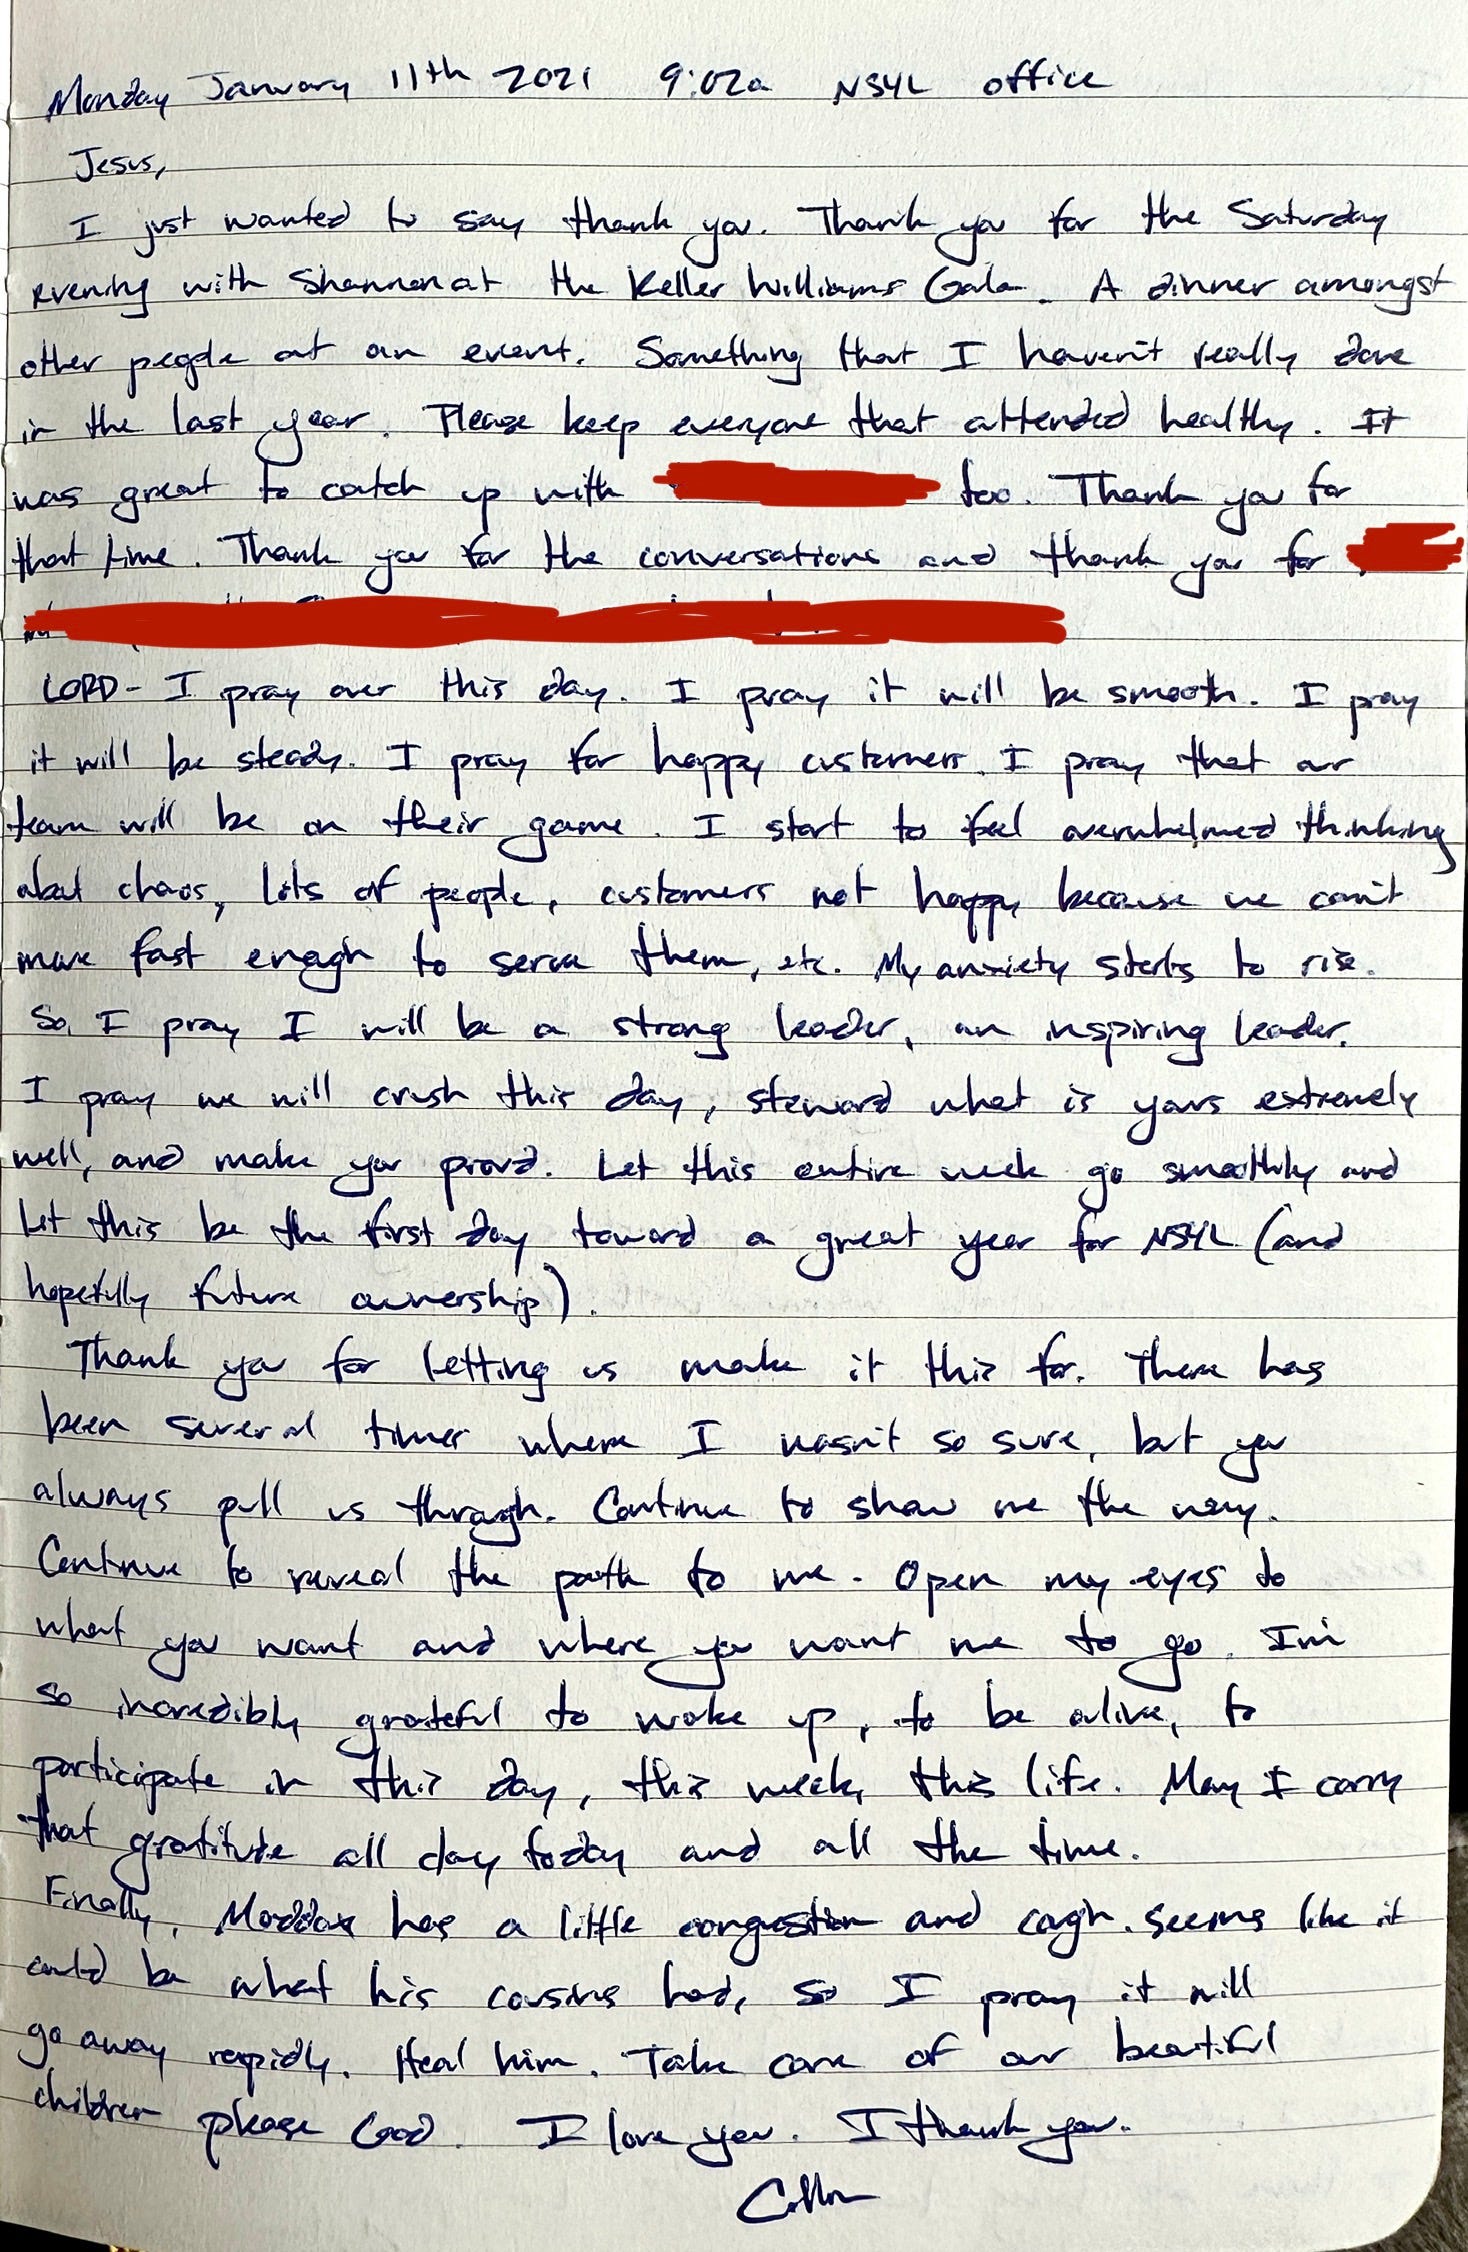 Monday January 11th 2021 9:02a NSYL office
Jesus,
I just wanted to say thank you. Thank you for the Saturday
evening with Shannon at the Keller Williams Gala. A dinner amongst
other people at an event. Something that I haven't really done
in the last year. Please keep everyone that attended healthy. It
was great to catch up with too. Thank you for
that time. Thank you for the conversations and thank you for
LORD - I pray over this day. I pray it will be smooth. I pray
it will be steady. I pray for happy customers. I pray that our
team will be on their game. I start to feel overwhelmed thinking
about chaos, lots of people, customers not happy because we can't
move fast enough to serve them, etc. My anxiety starts to rise.
So, I pray I will be a strong leader, an inspiring leader.
I pray we will crush this day, steward what is yours extremely
well, and make you proud. Let this entire week go smoothly and
let this be the first day toward a great year for NSYL (and
hopefully future ownership).
Thank you for letting us make it this far. There has
been several times where I wasn't so sure, but you
always pull us through. Continue to show me the way.
Continue to reveal the path to me. Open my eyes to
what you want and where you want me to go. I'm
so incredibly grateful to wake up, to be alive, to
participate in this day, this week, this life. May I carry
that gratitude all day today and all the time.
Finally, Maddox has a little congestion and cough. Seems like it
could be what his cousins had, so I pray it will
go away rapidly. Heal him. Take care of our beautiful
children please God. I love you. I thank you.